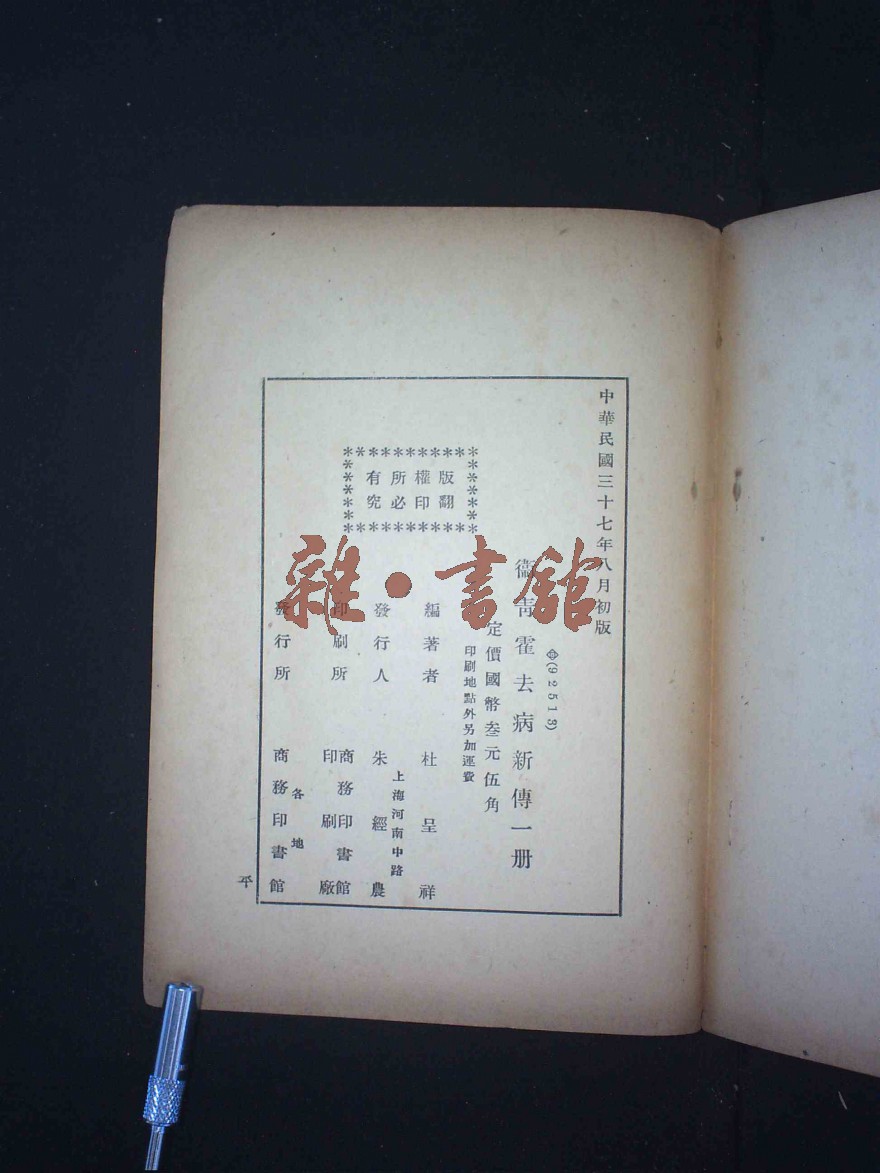 中華民國三十七年八月初版
(92513)
衞青霍去病新傳一册
定價國幣叁元伍角
印刷地點外另加運費
版權所有
翻印必究
編著者 杜呈祥
上海河南中路
發行人 朱經農
印刷所 商務印書館
印刷廠
各地
發行所 商務印書館
平
雜·書館